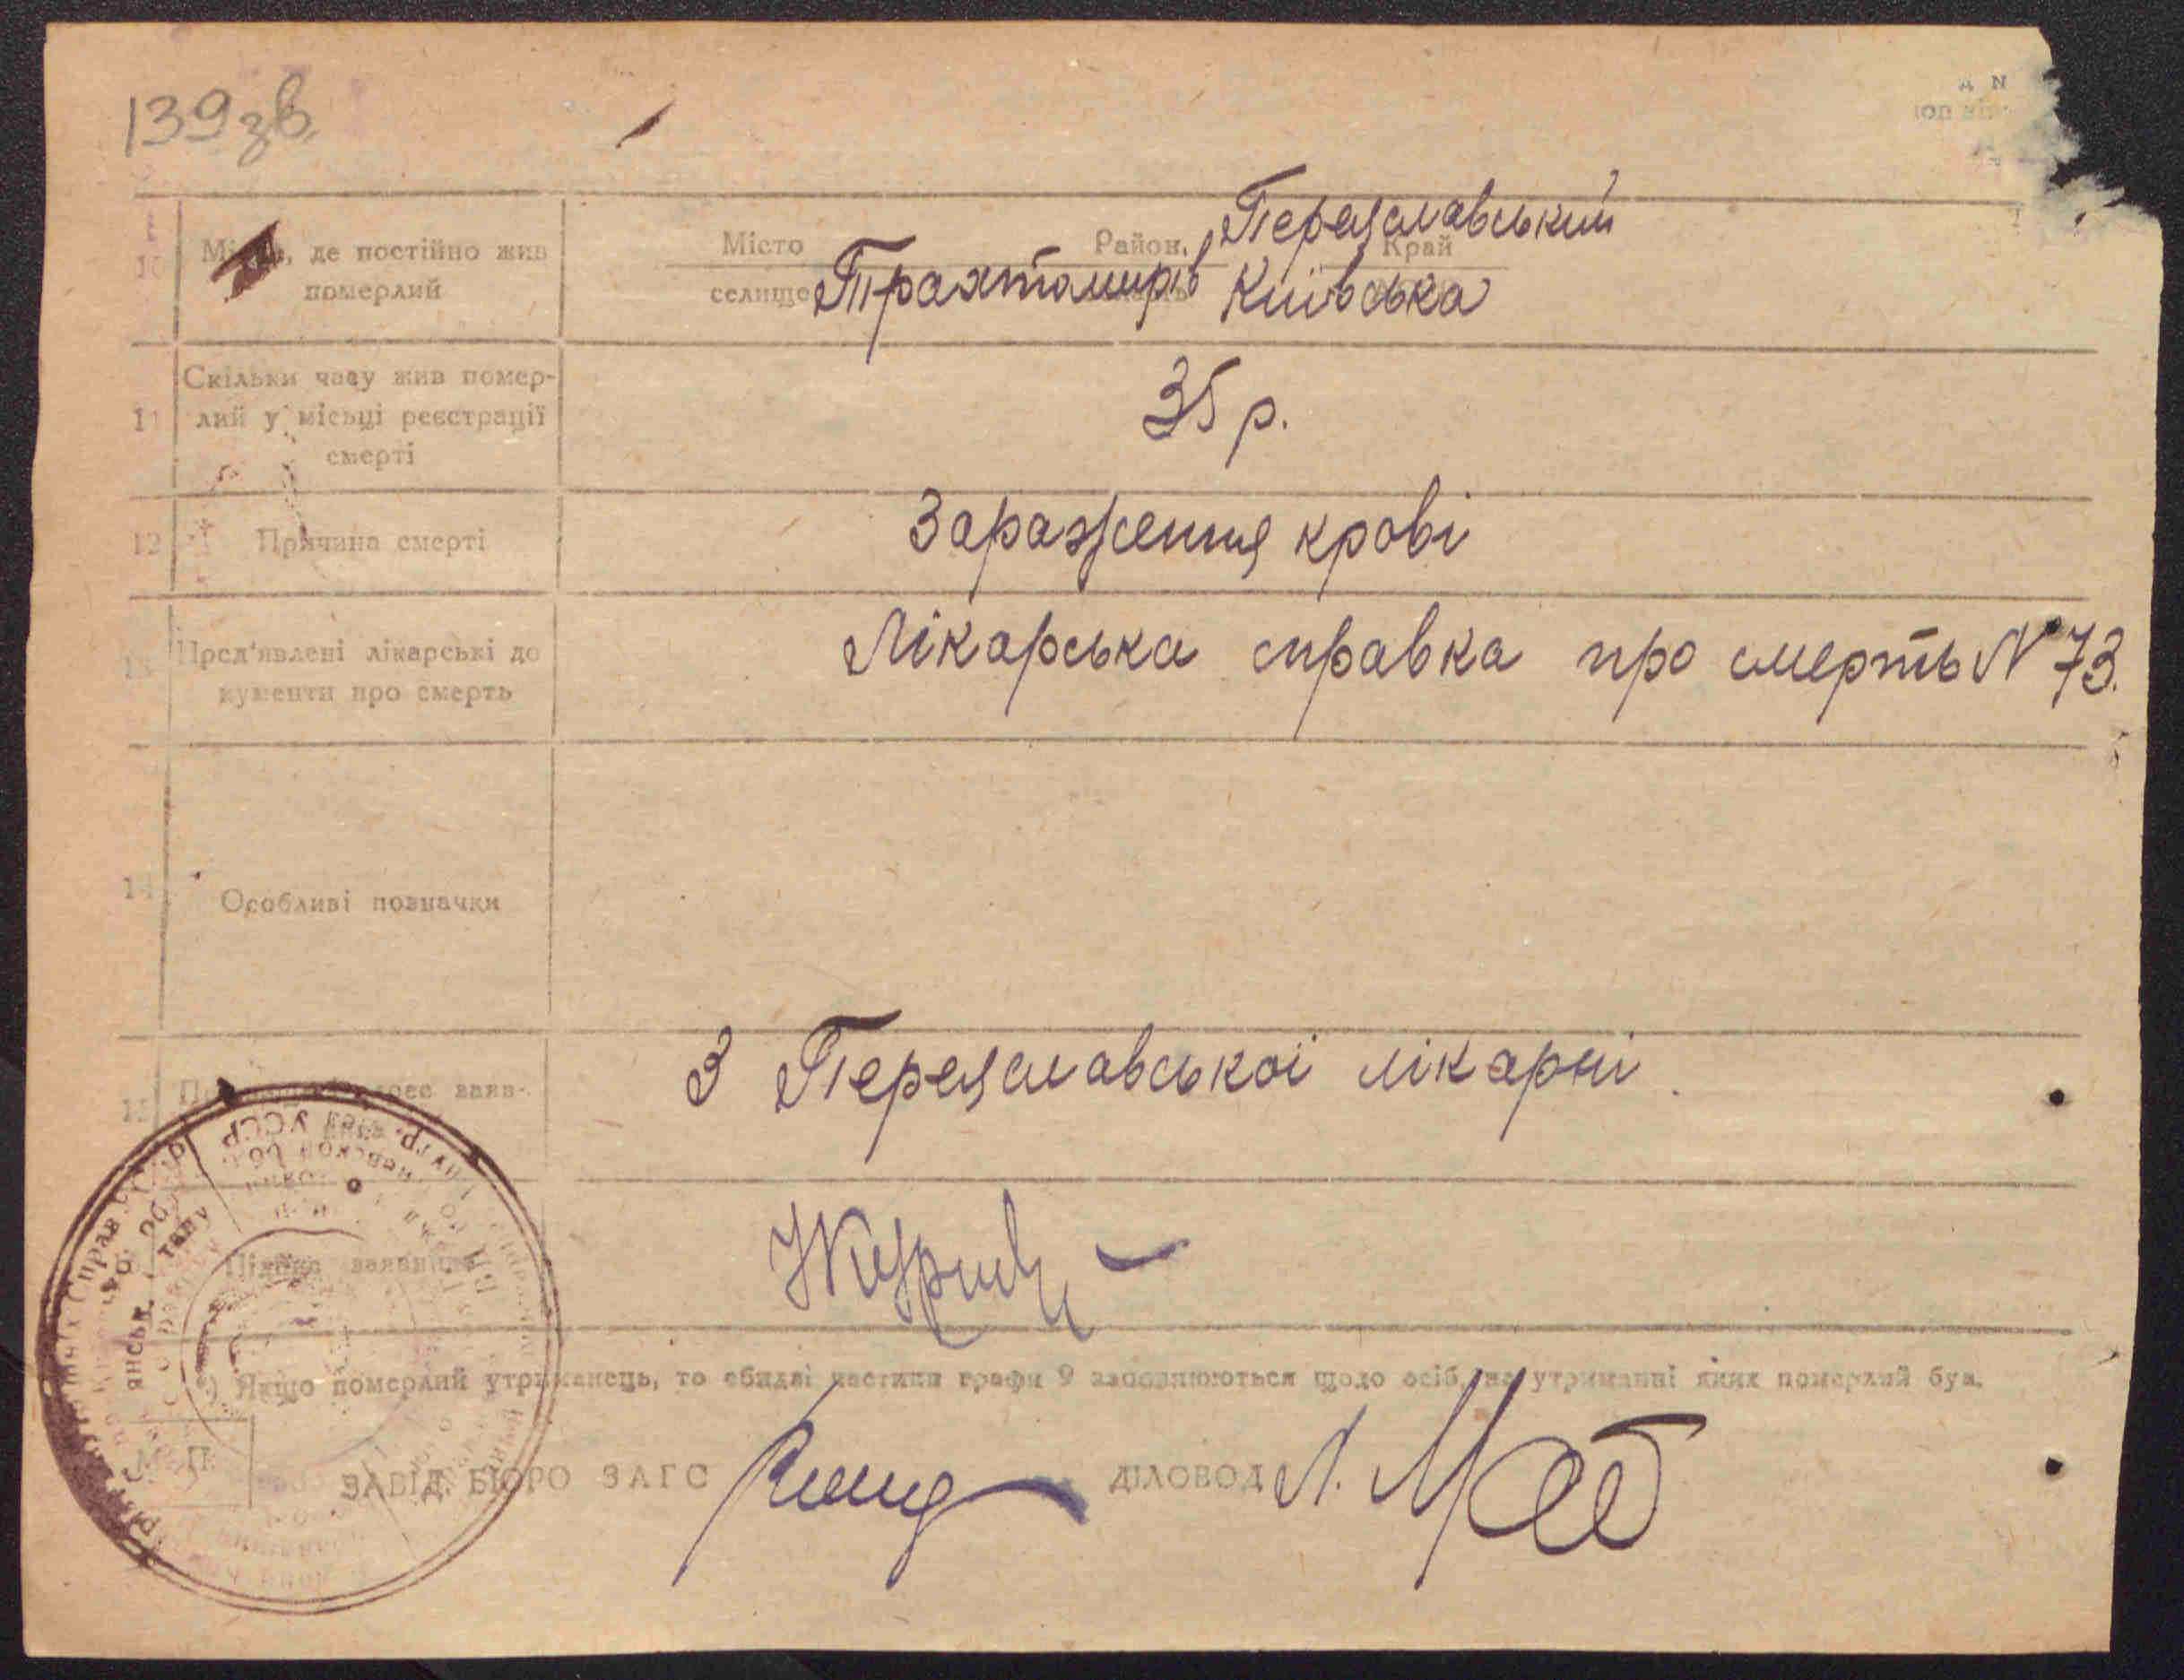 139 зв.
10 Місце, де постійно жив
померлий
Місто Район, Край
Переяславський
селище Трахтомирів Київська
11 Скільки часу жив помер-
лий у місьці реєстрації
смерті
35 р.
12 Причина смерті
Зараження крові
13 Пред'явлені лікарські до
кументи про смерть
Лікарська справка про смерть № 73.
14 Особливі позначки
15
З Переяславської лікарні
Підпис заявника
*) Якщо померлий утриманець, то обидві частини графи 9 заповнюються щодо осіб, на утриманні яких померлий був.
М. П.
ЗАВІД. БЮРО ЗАГС ДІЛОВОД Л.